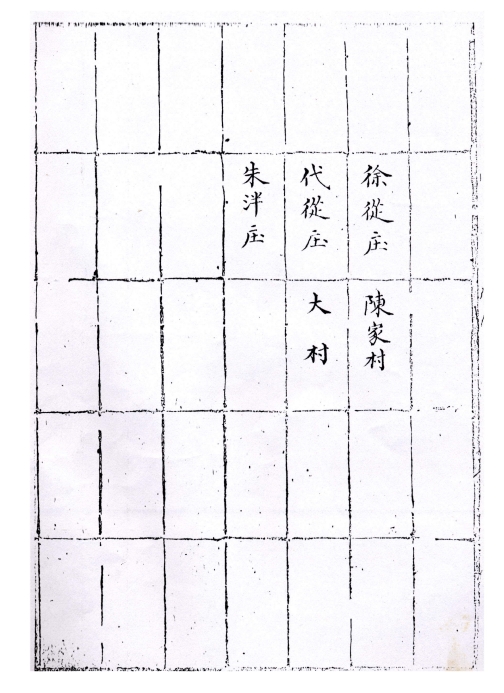 徐從庄
陳家村
代從庄
大村
朱泮庄